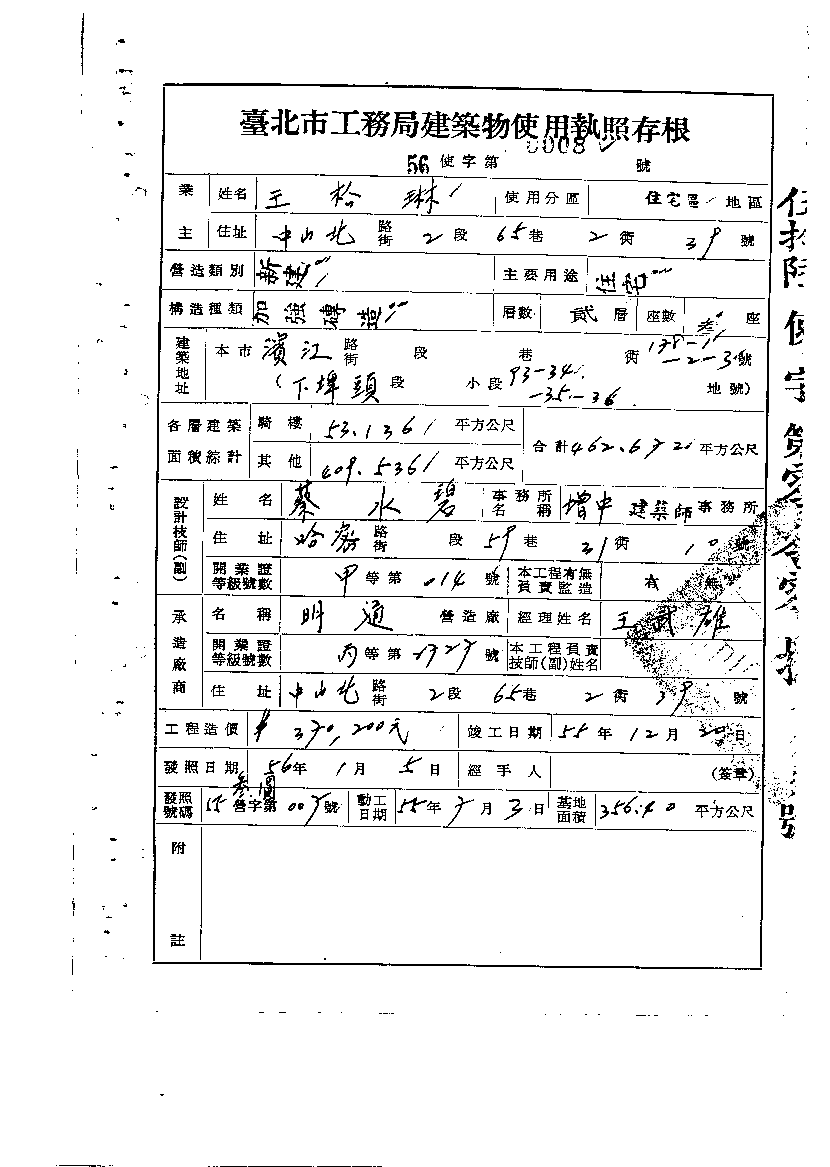 臺北市工務局建築物使用執照存根
56 使字第 0008 號
業 姓名 王 松 琳 使用分區 住宅區 地區
主 住址 中山北 路街 2 段 65 巷 2 衖 39 號
營造類別 新建 主要用途 住宅
構造種類 加強磚造 層數 貳 層 座數 叁 座
建築地址 本市 濱江 路街 段 巷 衖 178-1 -2-3 號
(下埤頭 段 小段 93-34 -35-36 地號)
各層建築 騎樓 53.1361 平方公尺 合計 462.672 平方公尺
面積綜計 其他 409.5361 平方公尺
設計技師(副) 姓名 蔡 水 碧 事務所名稱 增中 建築師 事務所
住址 哈密 路街 段 59 巷 21 衖 10
開業證等級號數 甲 等第 014 號 本工程有無負責監造 有 無
承造廠商 名稱 明 通 營造廠 經理姓名 王 武 雄
開業證等級號數 丙 等第 號 本工程負責技師(副)姓名
住址 中山北 路街 2 段 65 巷 2 衖 39 號
工程造價 370,200元 竣工日期 55 年 12 月 20 日
發照日期 56 年 1 月 5 日 經手人 (簽章)
發照號碼 55 營字第 號 動工日期 55 年 7 月 3 日 基地面積 356.40 平方公尺
附
註